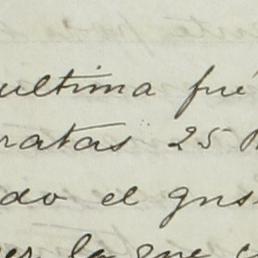 ultima fué
ratas 25
do el gus
la que